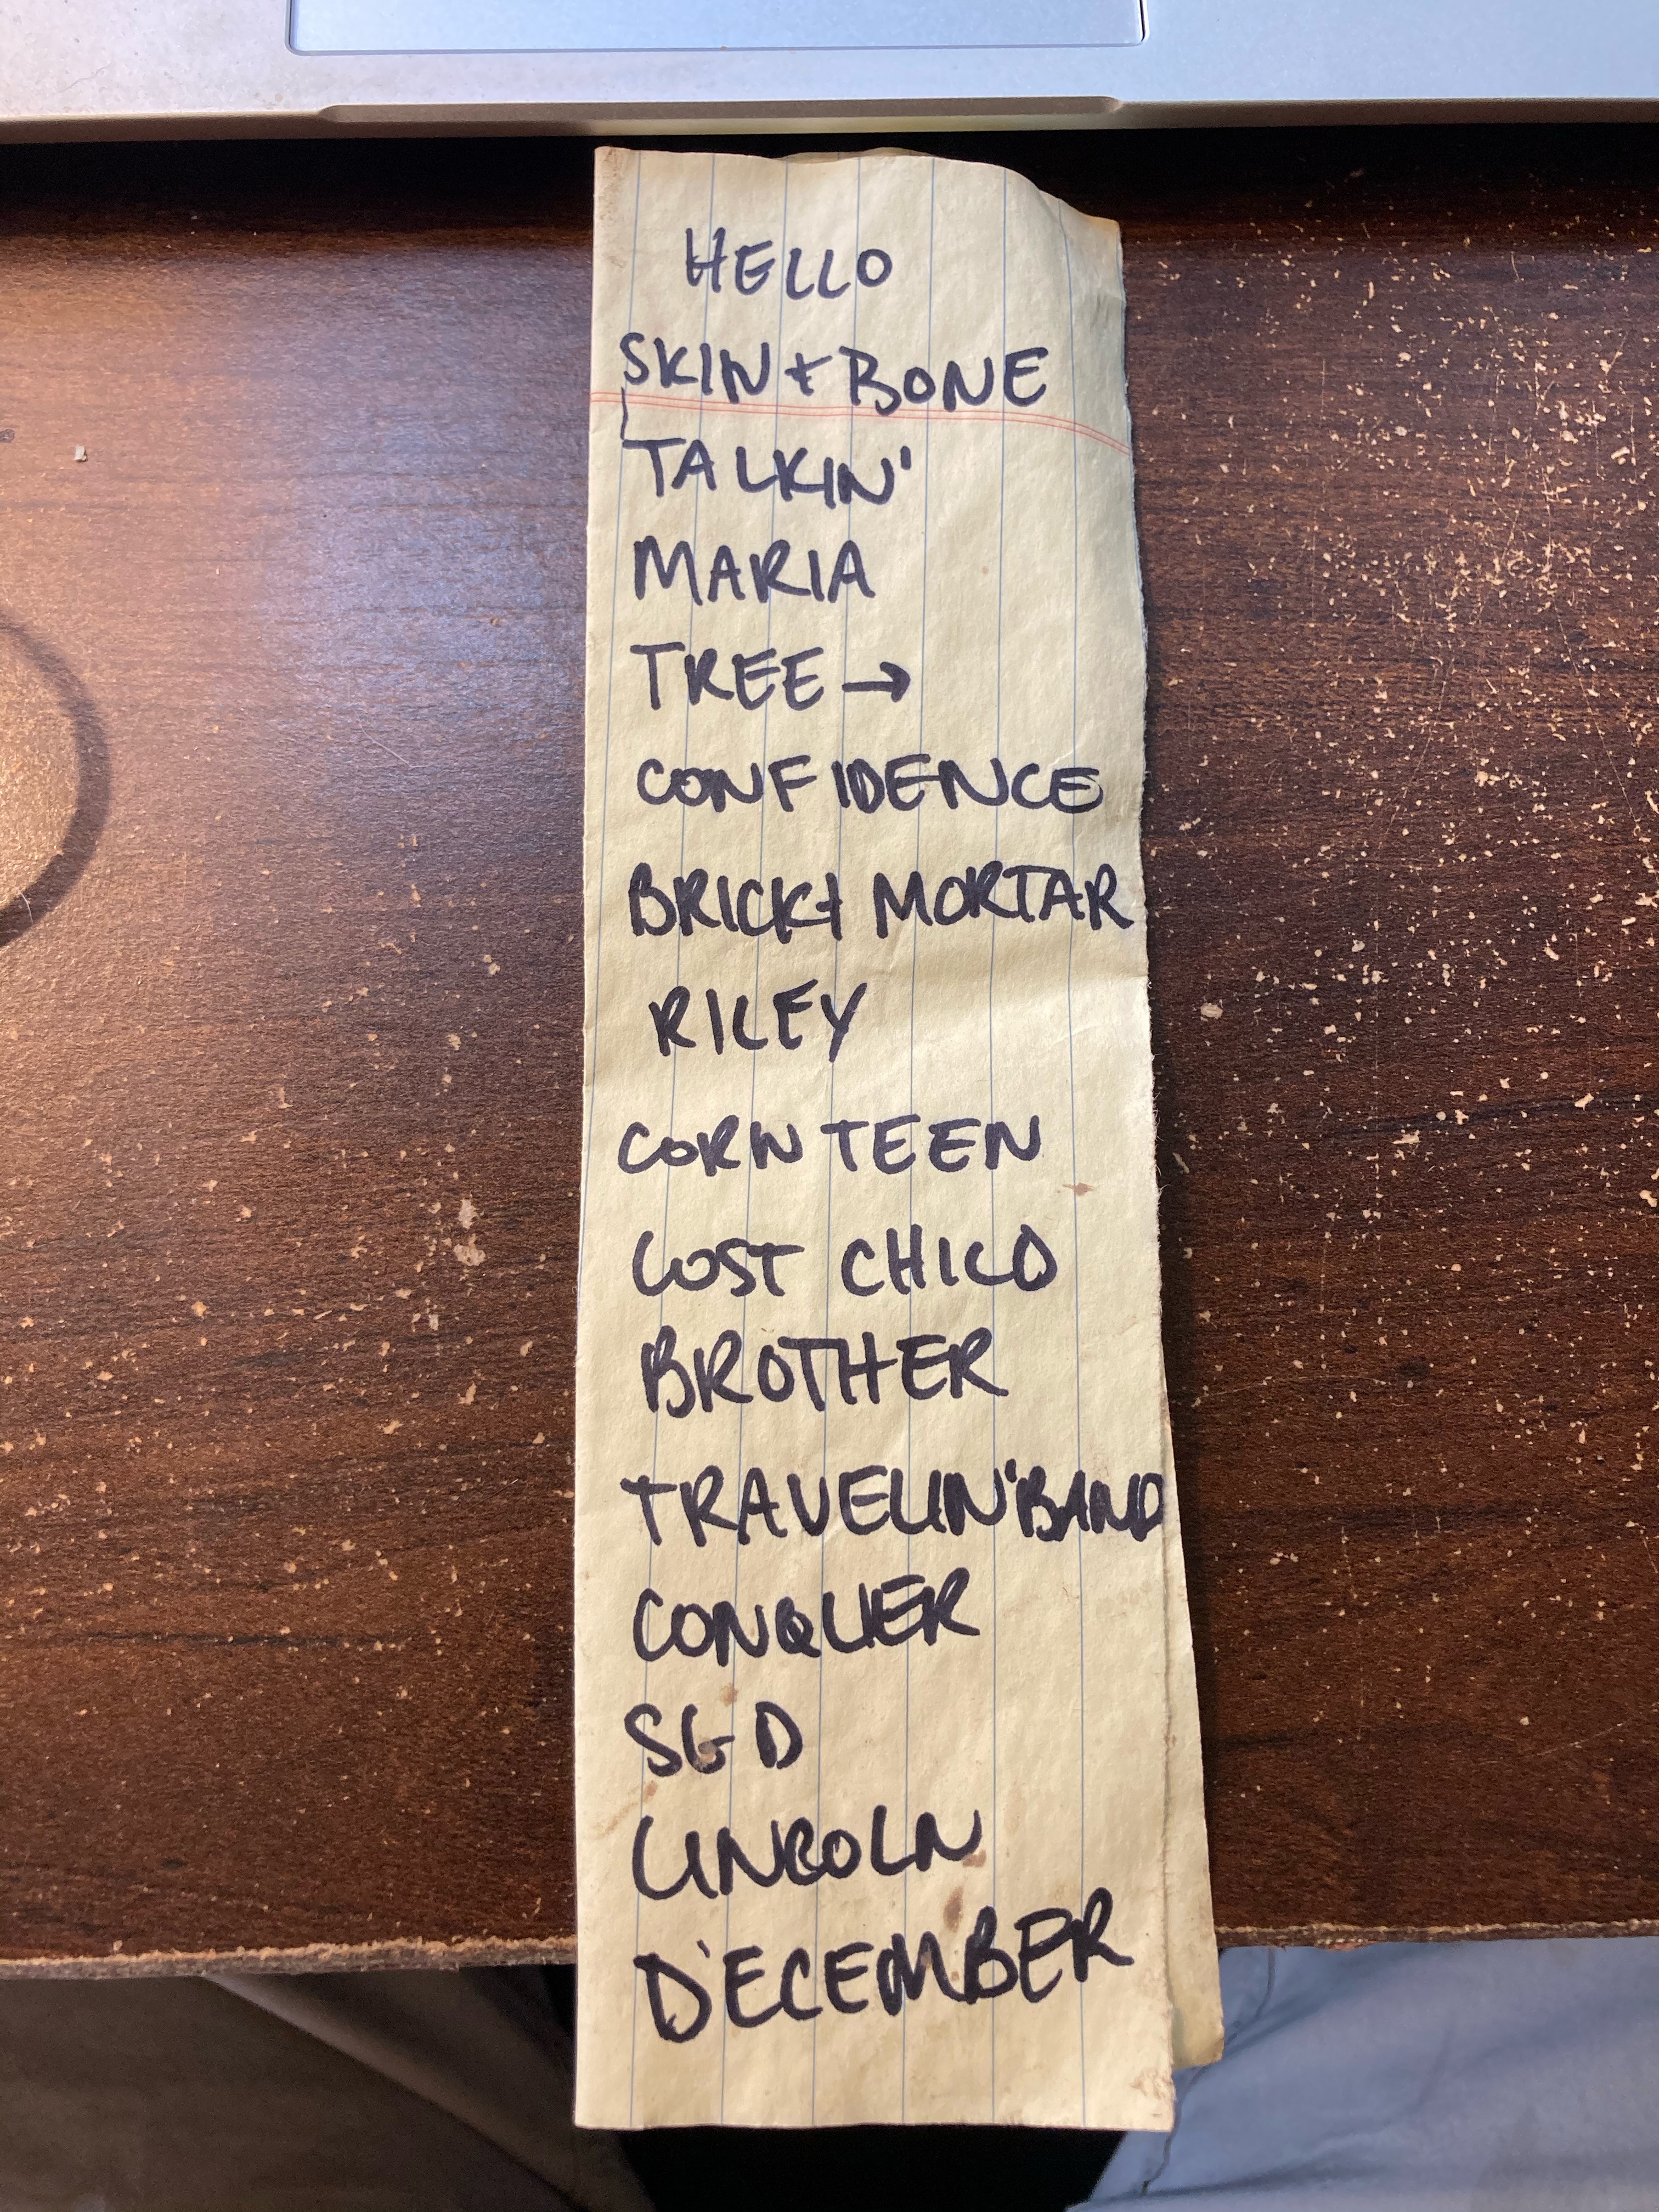 HELLO
SKIN + BONE
TALKIN'
MARIA
TREE →
CONFIDENCE
BRICK + MORTAR
RILEY
CORN TEEN
LOST CHILD
BROTHER
TRAVELIN' BAND
CONQUER
SGD
LINCOLN
DECEMBER